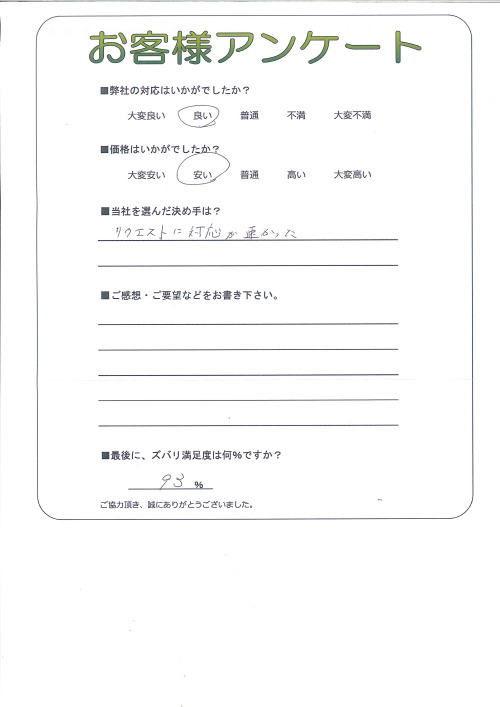 お客様アンケート
■弊社の対応はいかがでしたか？
大変良い 良い 普通 不満 大変不満
■価格はいかがでしたか？
大変安い 安い 普通 高い 大変高い
■当社を選んだ決め手は？
リクエストに対応が速かった
■ご感想・ご要望などをお書き下さい。
■最後に、ズバリ満足度は何％ですか？
93 %
ご協力頂き、誠にありがとうございました。